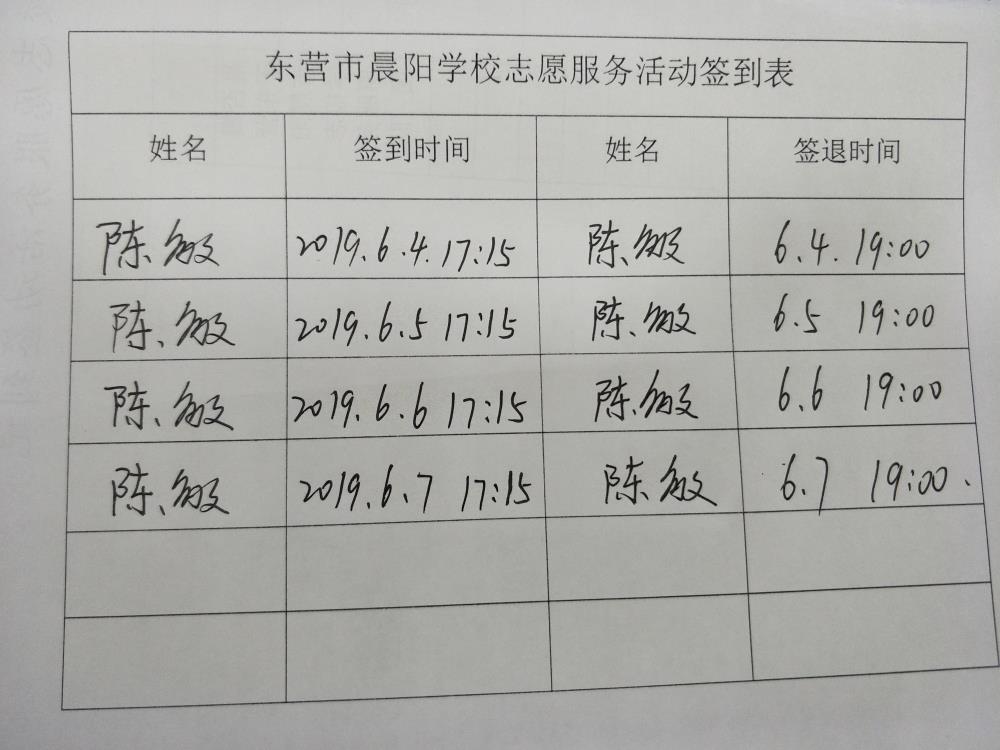 东营市晨阳学校志愿服务活动签到表
姓名 签到时间 姓名 签退时间
陈敏 2019.6.4. 17:15 陈敏 6.4. 19:00
陈敏 2019.6.5 17:15 陈敏 6.5 19:00
陈敏 2019.6.6 17:15 陈敏 6.6 19:00
陈敏 2019.6.7 17:15 陈敏 6.7 19:00.